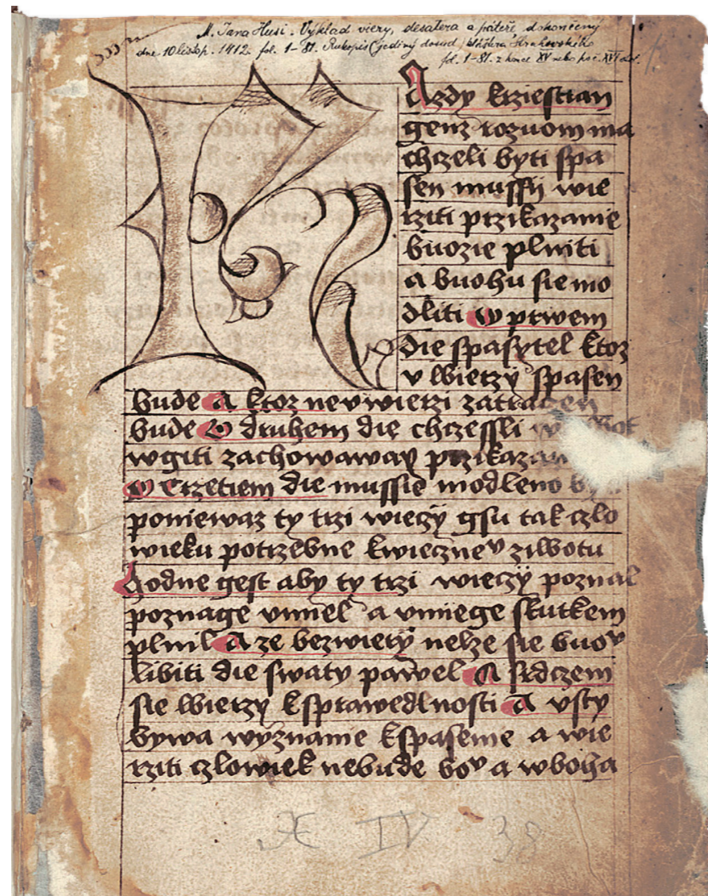 M. Jana Husi. Výklad viery, desatera a páteře dokončený
dne 10 listop. 1412. fol. 1–81. Rukopis (jediný dosud)
fol. 1–81. z konce XV nebo poč. XVI stol.
Kazdy krziestian
genz rozuom ma
chczeli byti spa
sen mussy wie
rziti przikazanie
buozie plniti
a buohu sie mo
dliti W prwem
die spasytel ktoz
v wierzy spasen
bude A ktoz newwierzi zatraczen
bude O druhem die chczessli
wgiti zachowaway przikazanie
O trzetiem die mussie modleno
poniewaz ty trzi wieczy gsu tak czlo
wieku potrzebne kwiecznev ziwotu
hodne gest aby ty trzi wieczy poznal
poznage vmiel a vmiege skutkem
plnil A ze bezwiery nelze sie buov
libiti die swaty pawel A srdczem
sie wierzy ksprawedlnosti A vsty
bywa wyznanie kspasenie a wie
rziti czlowiek nebude bov a wboha
XE IV 38